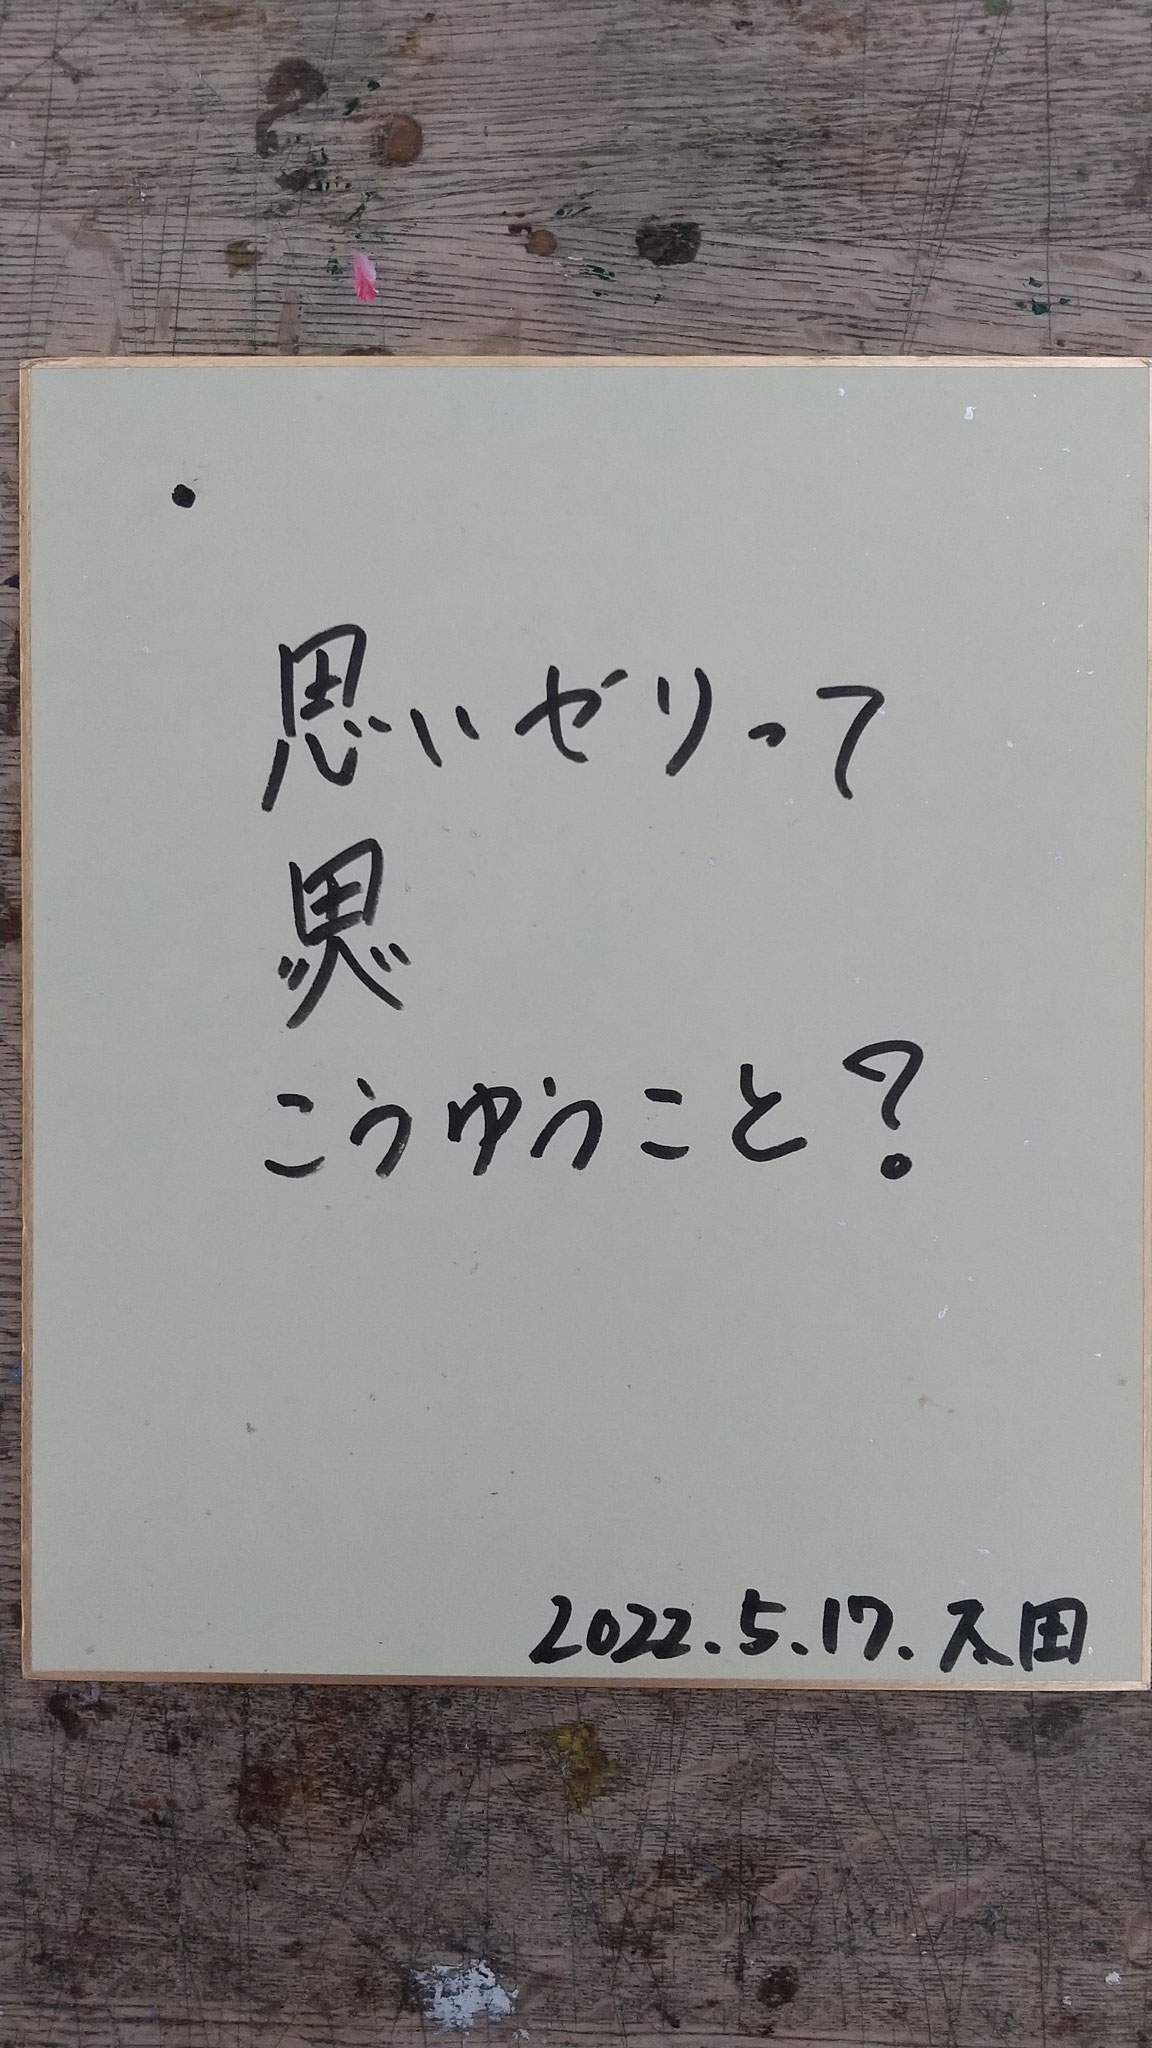 思いやりって
こうゆうこと?
2022.5.17.太田